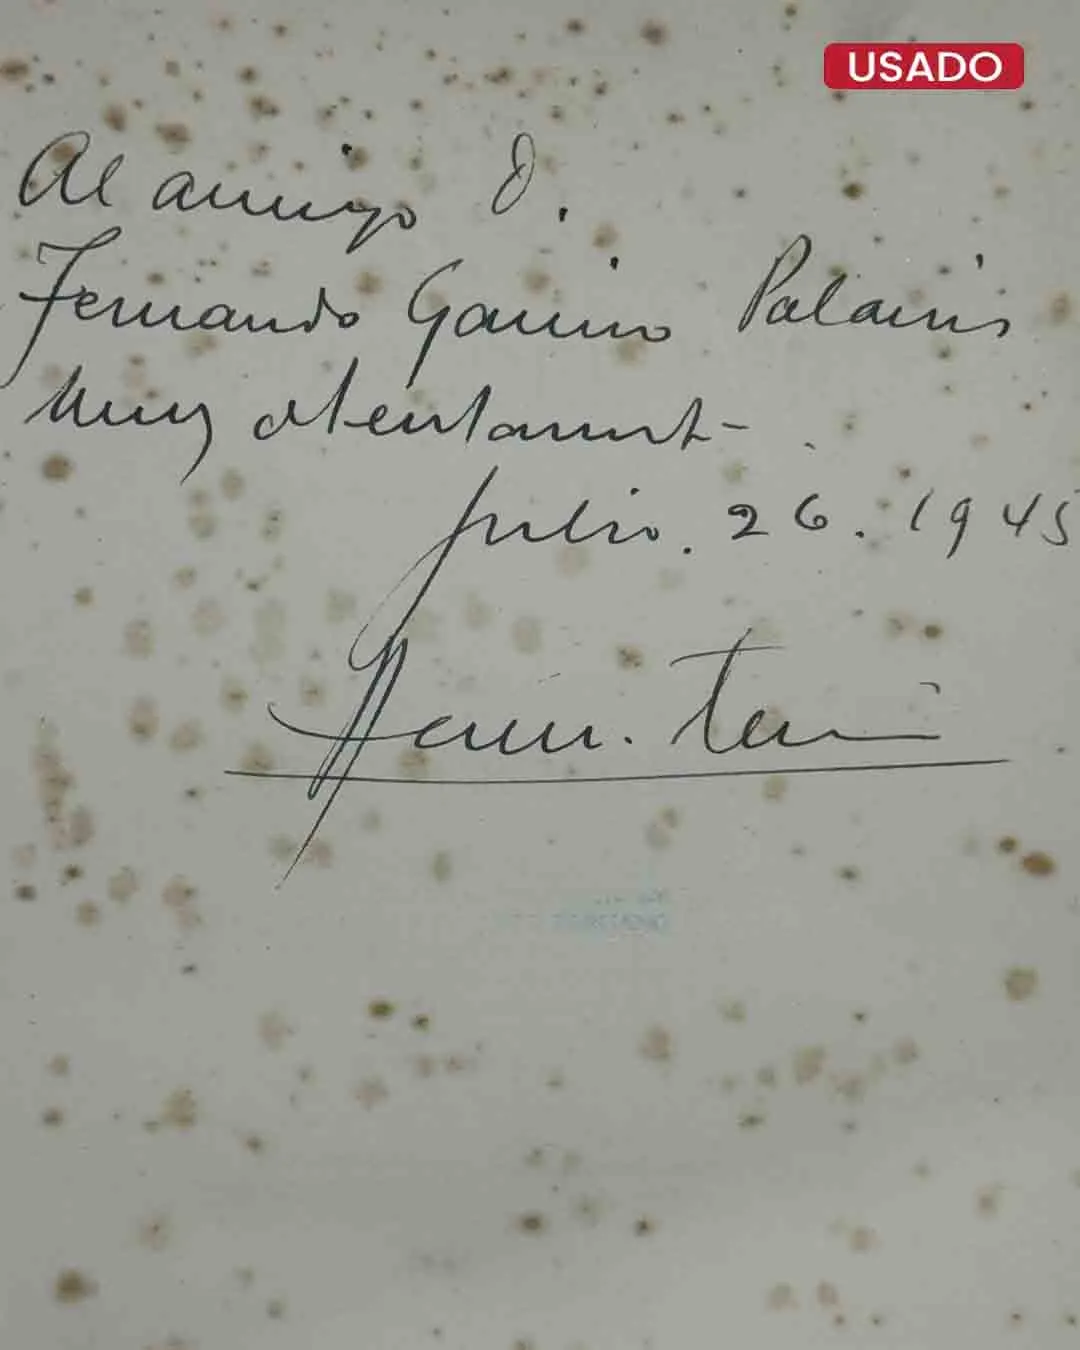 USADO
Al amigo D.
Fernando Gamino Palacios
Muy atentament-
Julio. 26. 1945